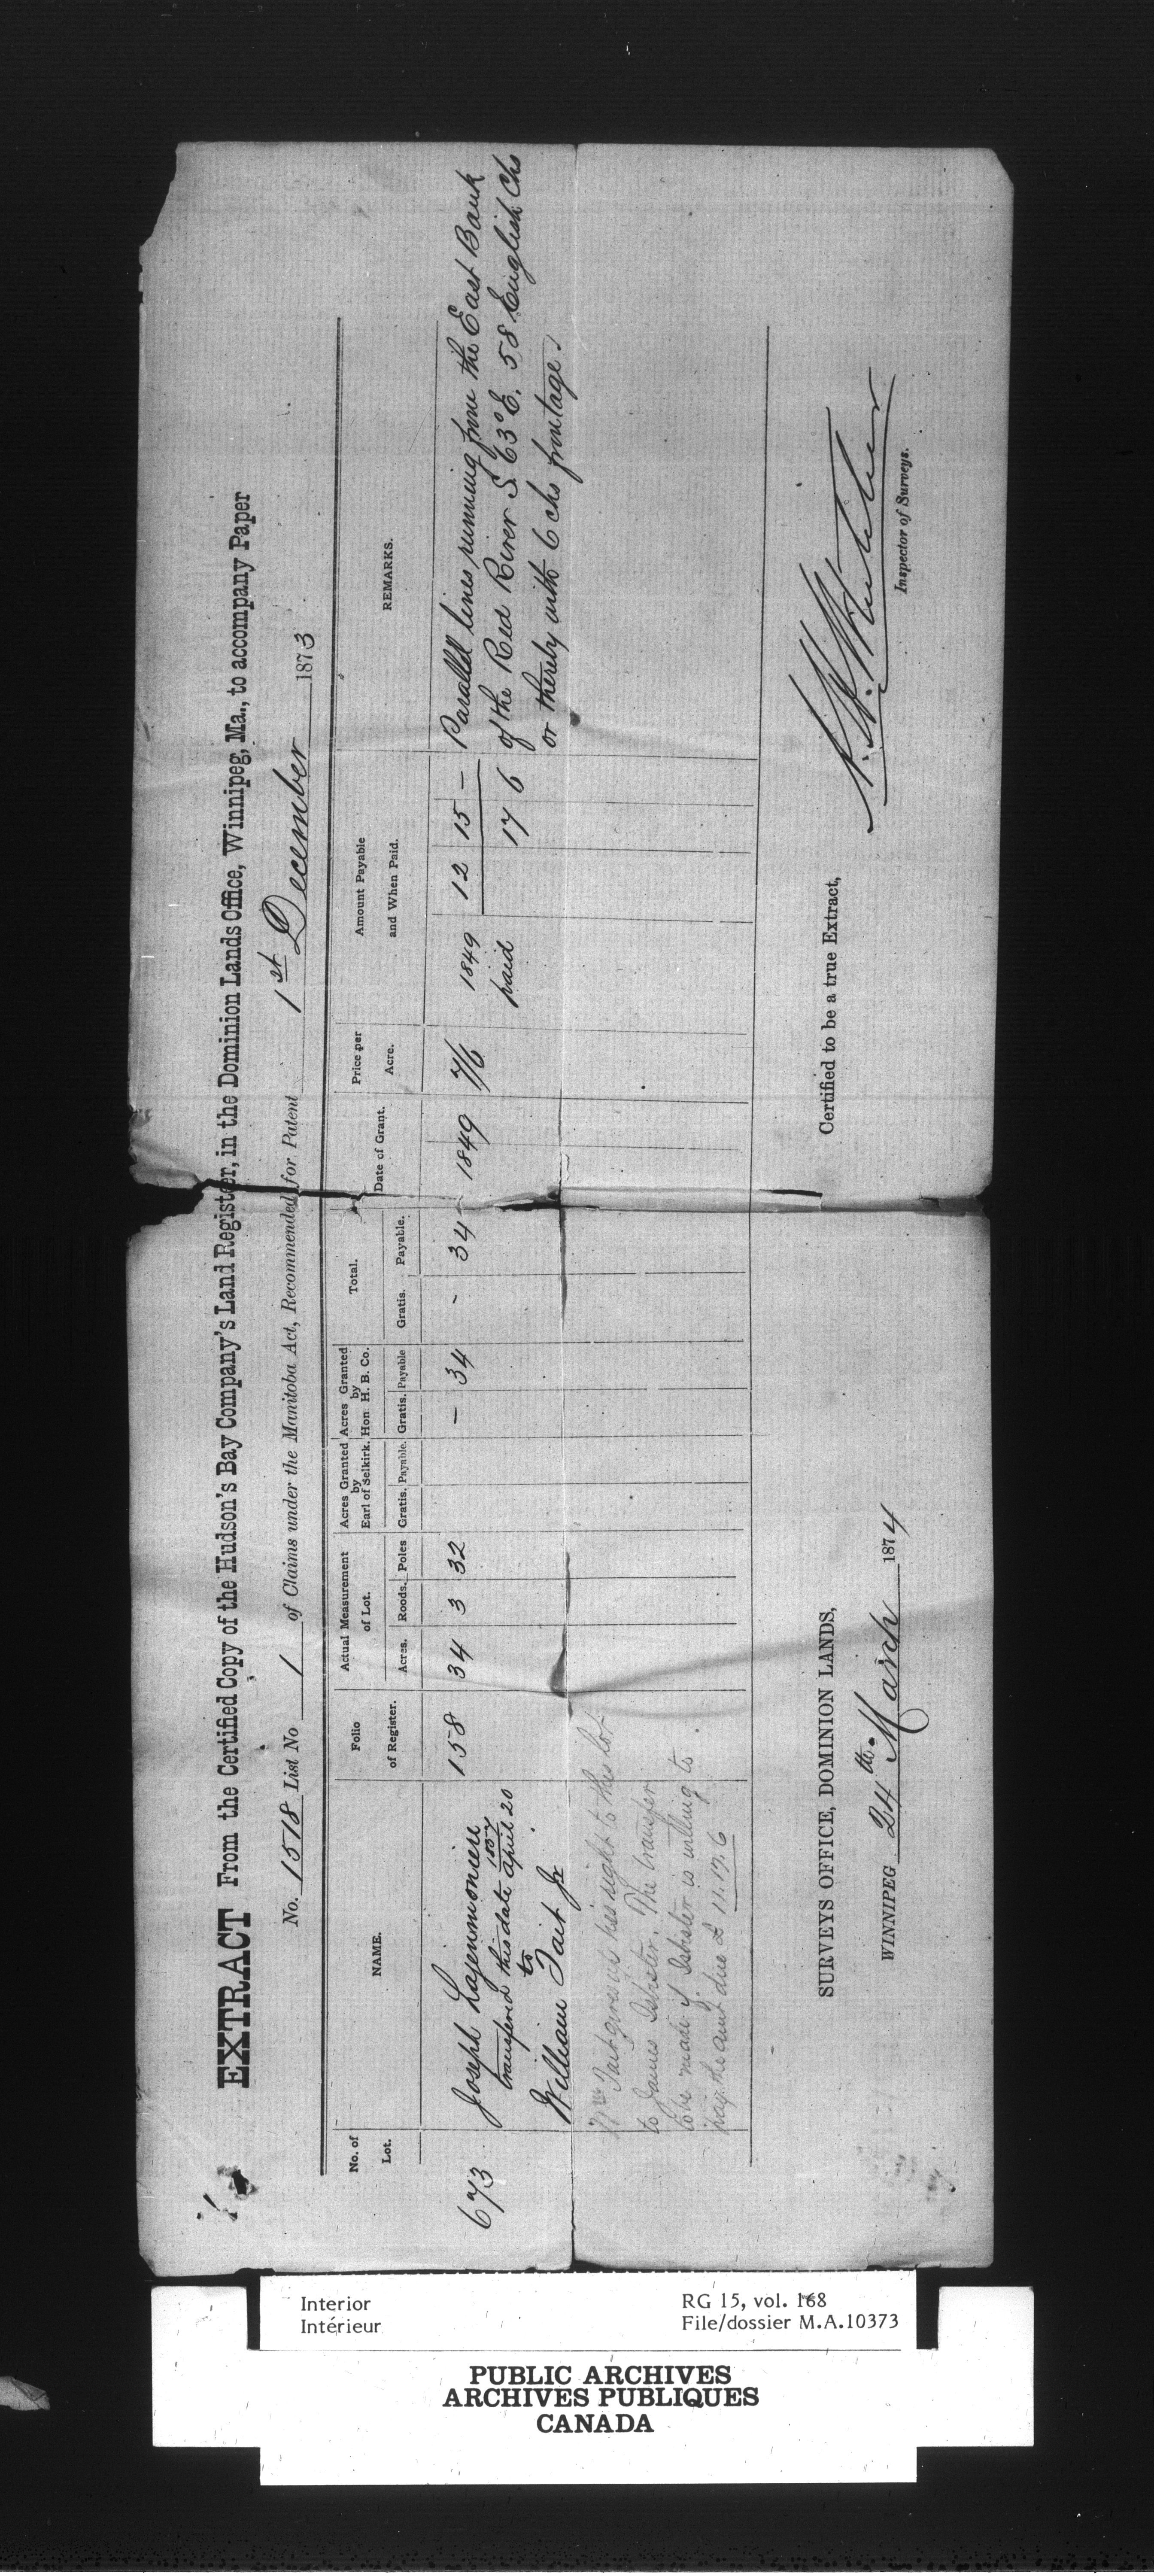 EXTRACT From the Certified Copy of the Hudson's Bay Company's Land Register, in the Dominion Lands Office, Winnipeg, Ma., to accompany Paper
No. 1518 List No 1 of Claims under the Manitoba Act, Recommended for Patent 1st December 1873
No. of Lot.
NAME.
Folio of Register.
Actual Measurement of Lot.
Acres. Roods. Poles
Acres Granted by Earl of Selkirk.
Gratis. Payable.
Acres Granted by Hon H. B. Co.
Gratis. Payable
Total.
Gratis. Payable.
Date of Grant.
Price per Acre.
Amount Payable and When Paid.
REMARKS.
673 Joseph Lajemmoniere 158 34 3 32 — 34 - 34 1849 7/6 1849 12 15 —
transfered this date 1857 April 20 paid 17 6
to
William Tait Jr
Parallel lines running from the East Bank
of the Red River S. 63° E. 58 English Chs
or thereby with 6 chs frontage.
Wm Tait gives up his right to this lot
to James Isbister. The transfer
to be made if Isbister is willing to
pay the amt due £ 11.17.6
Certified to be a true Extract,
Inspector of Surveys.
SURVEYS OFFICE, DOMINION LANDS,
WINNIPEG 24th March 1874
Interior
Intérieur
RG 15, vol. 168
File/dossier M.A.10373
PUBLIC ARCHIVES
ARCHIVES PUBLIQUES
CANADA